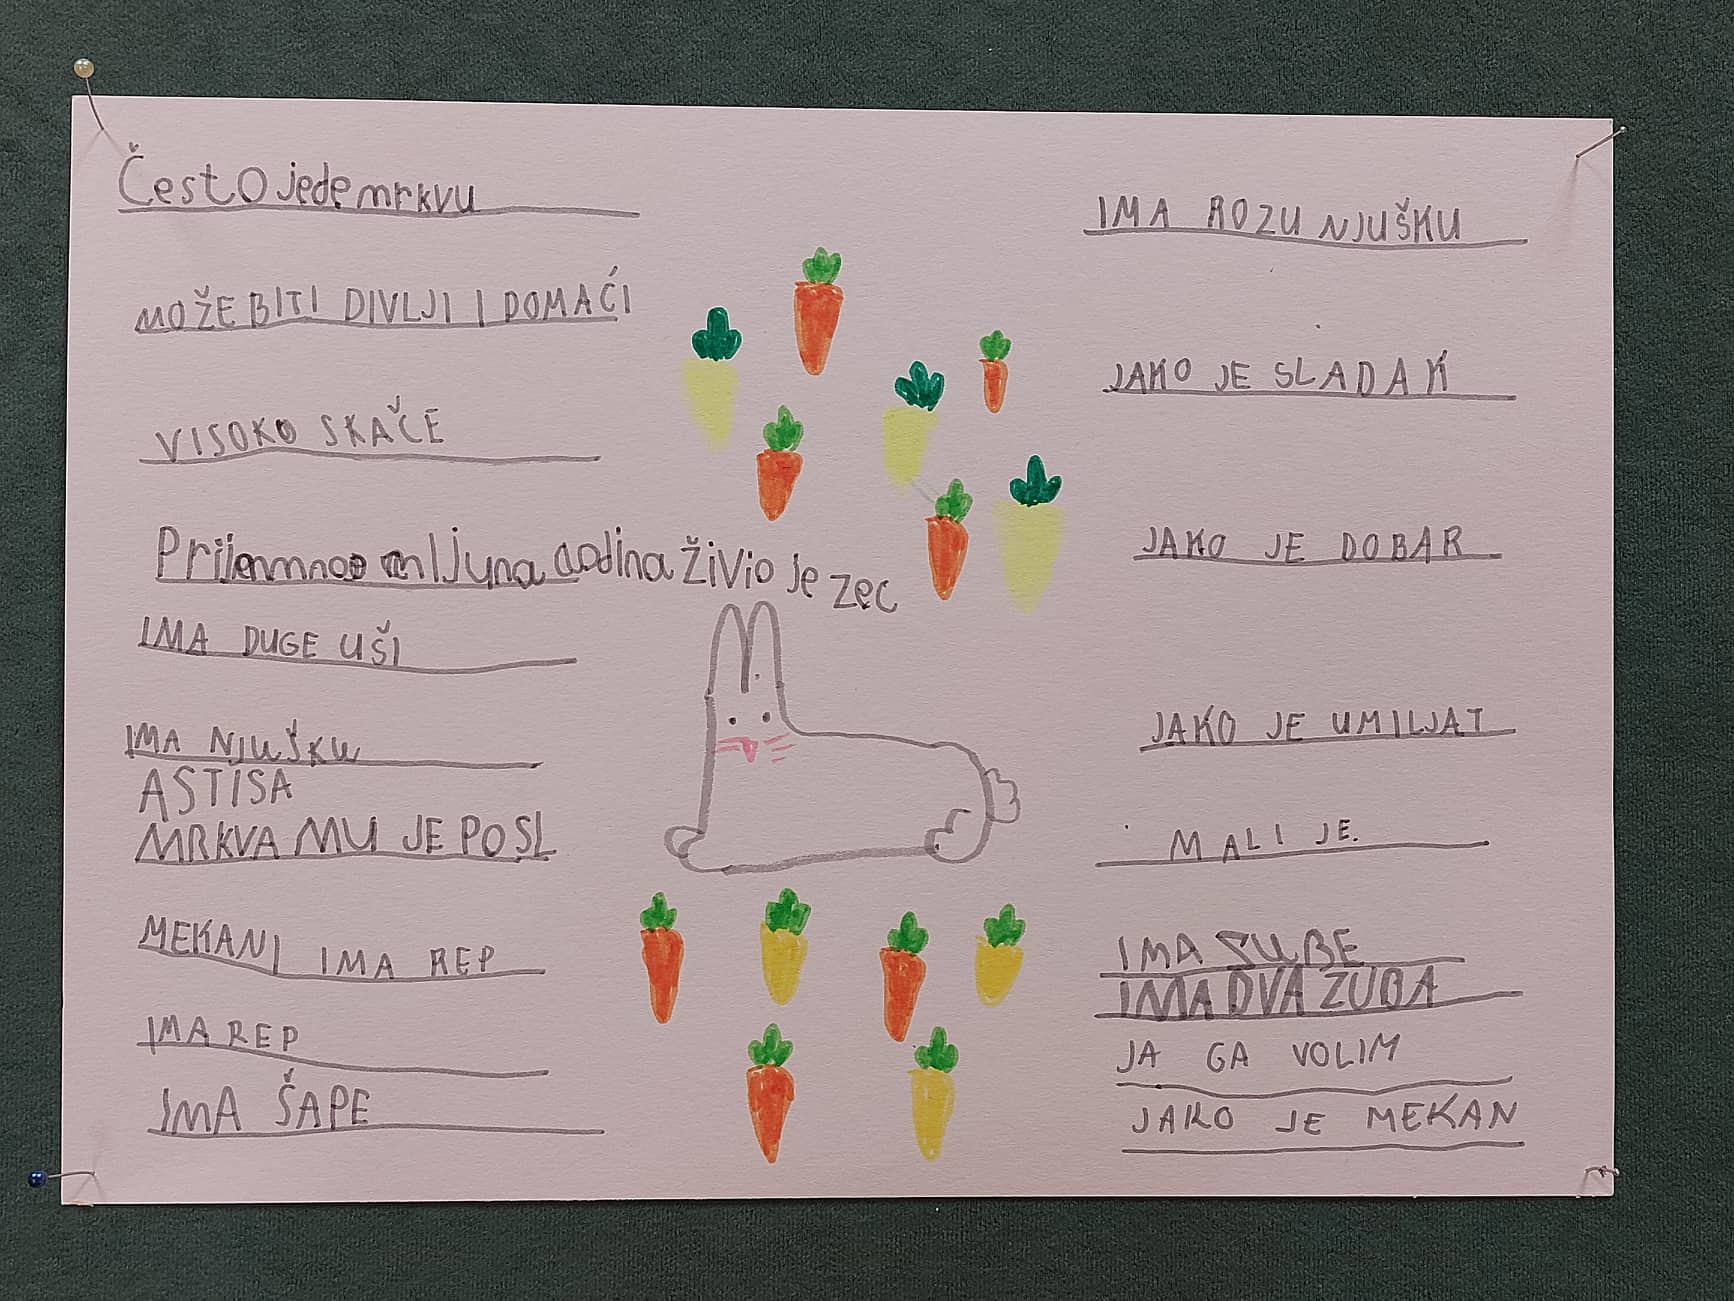 Često jede mrkvu
MOŽE BITI DIVLJI I DOMAĆI
VISOKO SKAČE
godina živio je zec
IMA DUGE UŠI
IMA NJUŠKU
ASTISA
MRKVA MU JE POSL
MEKANI IMA REP
IMA REP
IMA ŠAPE
IMA ROZU NJUŠKU
JAKO JE SLADAK
JAKO JE DOBAR
JAKO JE UMILJAT
MALI JE.
IMA ZUBE
IMA DVA ZUBA
JA GA VOLIM
JAKO JE MEKAN